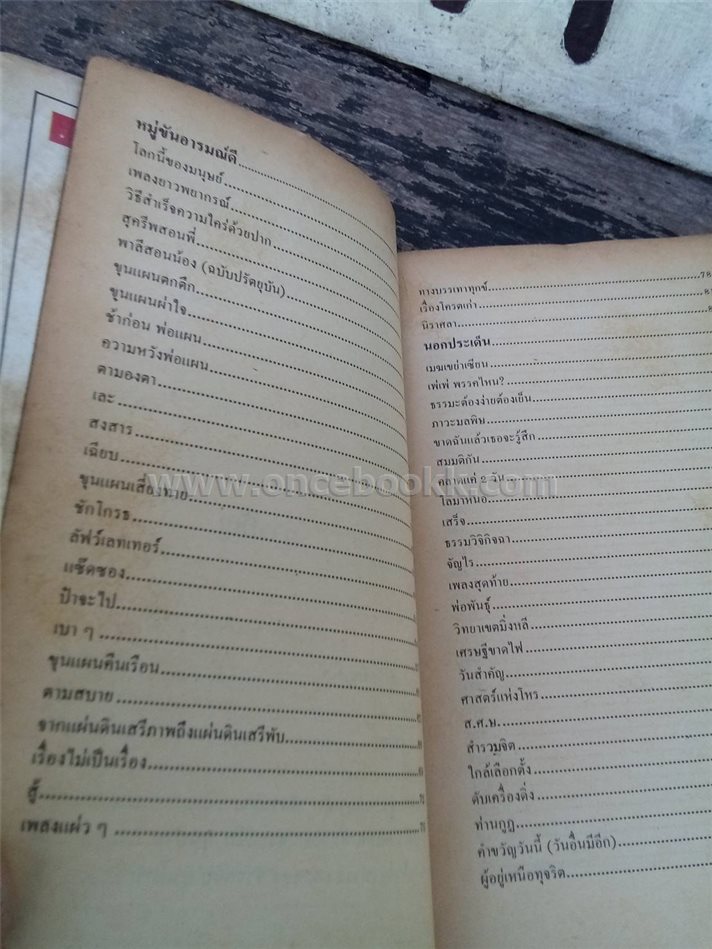 หมู่ขันอารมณ์ดี
โลกนี้ของมนุษย์
เพลงยาวพยากรณ์
วิธีสำเร็จความใคร่ด้วยปาก
สุครีพสอนพี่
พาลีสอนน้อง (ฉบับปรัตยุบัน)
ขุนแผนตกตึก
ขุนแผนผ่าใจ
ช้าก่อน พ่อแผน
ความหวังพ่อแผน
ตามองตา
เละ
สงสาร
เฉียบ
ขุนแผนเสี่ยงทาย
ชักโกรธ
ลัฟว์เลทเทอร์
แซ๊ดซอง
ป้าจะไป
เบา ๆ
ขุนแผนคืนเรือน
ตามสบาย
จากแผ่นดินเสรีภาพถึงแผ่นดินเสรีพับ
เรื่องไม่เป็นเรื่อง
สู้
เพลงแผ่ว ๆ
ทางบรรเทาทุกข์ 78
เรื่องโครตเก่า
นิราศลา
นอกประเด็น
เมฆเขย่าเซียน
เฟ่เฟ่ พรรคไหน?
ธรรมะต้องง่ายต้องเย็น
ภาวะมลพิษ
ขาดฉันแล้วเธอจะรู้สึก
สมมติกัน
คลาดแค่ 2 วัน
โสมาหนอ
เสร็จ
ธรรมวิจิกิจฉา
จัญไร
เพลงสุดท้าย
พ่อพันธุ์
วิทยาเขตมิ่งหลี
เศรษฐีขาดไฟ
วันสำคัญ
ศาสตร์แห่งโหร
ส.ศ.ษ.
สำรวมจิต
ใกล้เลือกตั้ง
ดับเครื่องดิ่ง
ท่านกูฏ
คำขวัญวันนี้ (วันอื่นมีอีก)
ผู้อยู่เหนือทุจริต
www.oncebookk.com